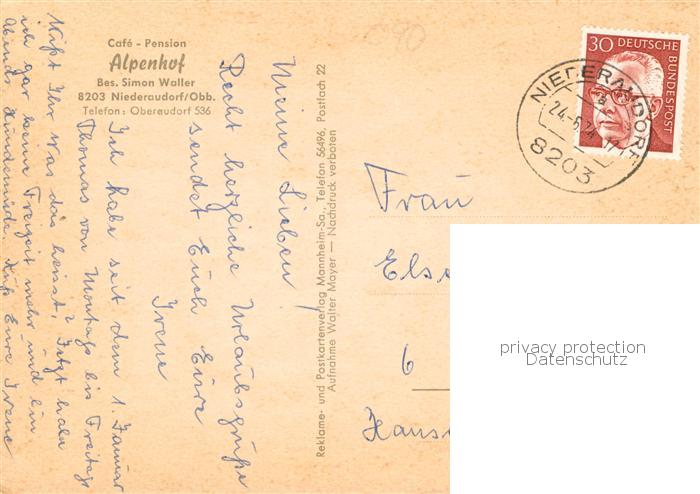 Café - Pension
Alpenhof
Bes. Simon Waller
8203 Niederaudorf/Obb.
Telefon: Oberaudorf 536
Meine Lieben!
Recht herzliche Urlaubsgrüße
sendet Euch Eure
Irene
Ich habe seit dem 1. Januar
Thomas von Montags bis Freitags
Wißt Ihr was das heisst? Jetzt habe
ich gar keine Freizeit mehr und bin
Abends hundemüde. Kuß Eure Irene
Reklame- und Postkartenverlag Mannheim-Sa., Telefon 56496, Postfach 22
Aufnahme Walter Mayer — Nachdruck verboten
30 DEUTSCHE
BUNDESPOST
NIEDERAUDORF
a
24.-5.74
8203
Frau
Else
6
privacy protection
Datenschutz